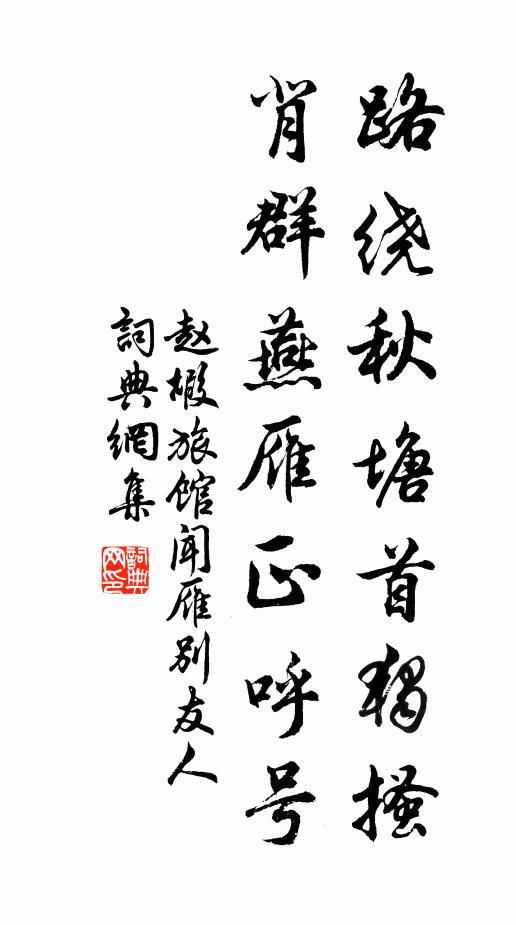 路绕秋塘首独搔
背群燕雁正呼号
赵嘏旅馆闻雁别友人
詞典網集
詞典网印